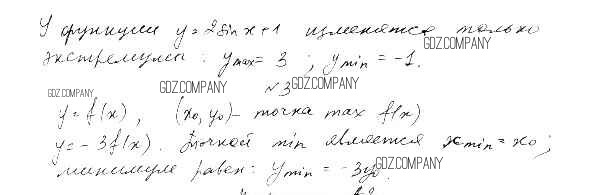 У функции y = 2sin x + 1 изменятся только
GDZ.COMPANY
экстремумы: ymax = 3; ymin = -1.
GDZ.COMPANY
№3
GDZ.COMPANY
GDZ.COMPANY
y = f(x), (x₀, y₀) - точка max f(x)
y = -3f(x). Точкой min является xmin = x₀;
минимум равен: ymin = -3y₀.
GDZ.COMPANY